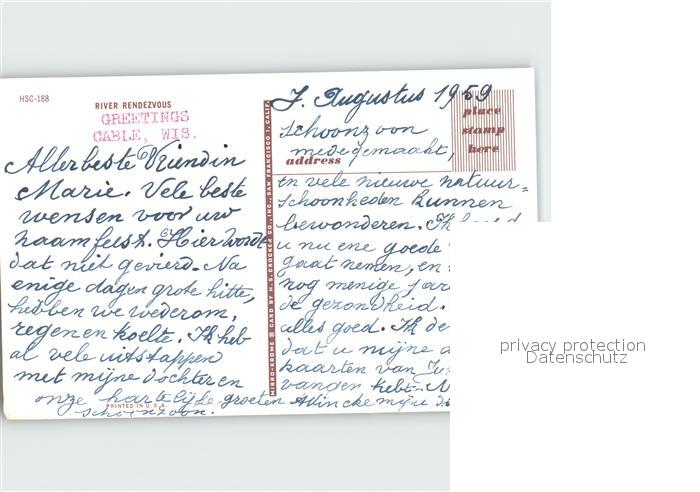 HSC-188
RIVER RENDEZVOUS
GREETINGS
CABLE, WIS.
Allerbeste Vriendin
Marie. Vele beste
wensen voor uw
naamfeest. Hier wordt
dat niet gevierd. Na
enige dagen grote hitte,
hebben we wederom,
regen en koelte. Ik heb
al vele uitstappen
met mijne dochter en
onze hartelijke groeten
schoonzoon.
PRINTED IN U.S.A.
MIRRO-KROME ® CARD BY H. S. CROCKER CO., INC., SAN FRANCISCO 1, CALIF.
7. Augustus 1959
place
stamp
here
schoonzoon
medegemaakt,
address
en vele nieuwe natuur=
schoonheden kunnen
bewonderen. Ik
u nu ene goede
gaat nemen, en
nog menige jar
de gezondheid.
alles goed. Ik de
dat u mijne
kaarten van
vangen hebt.
mijne
privacy protection
Datenschutz